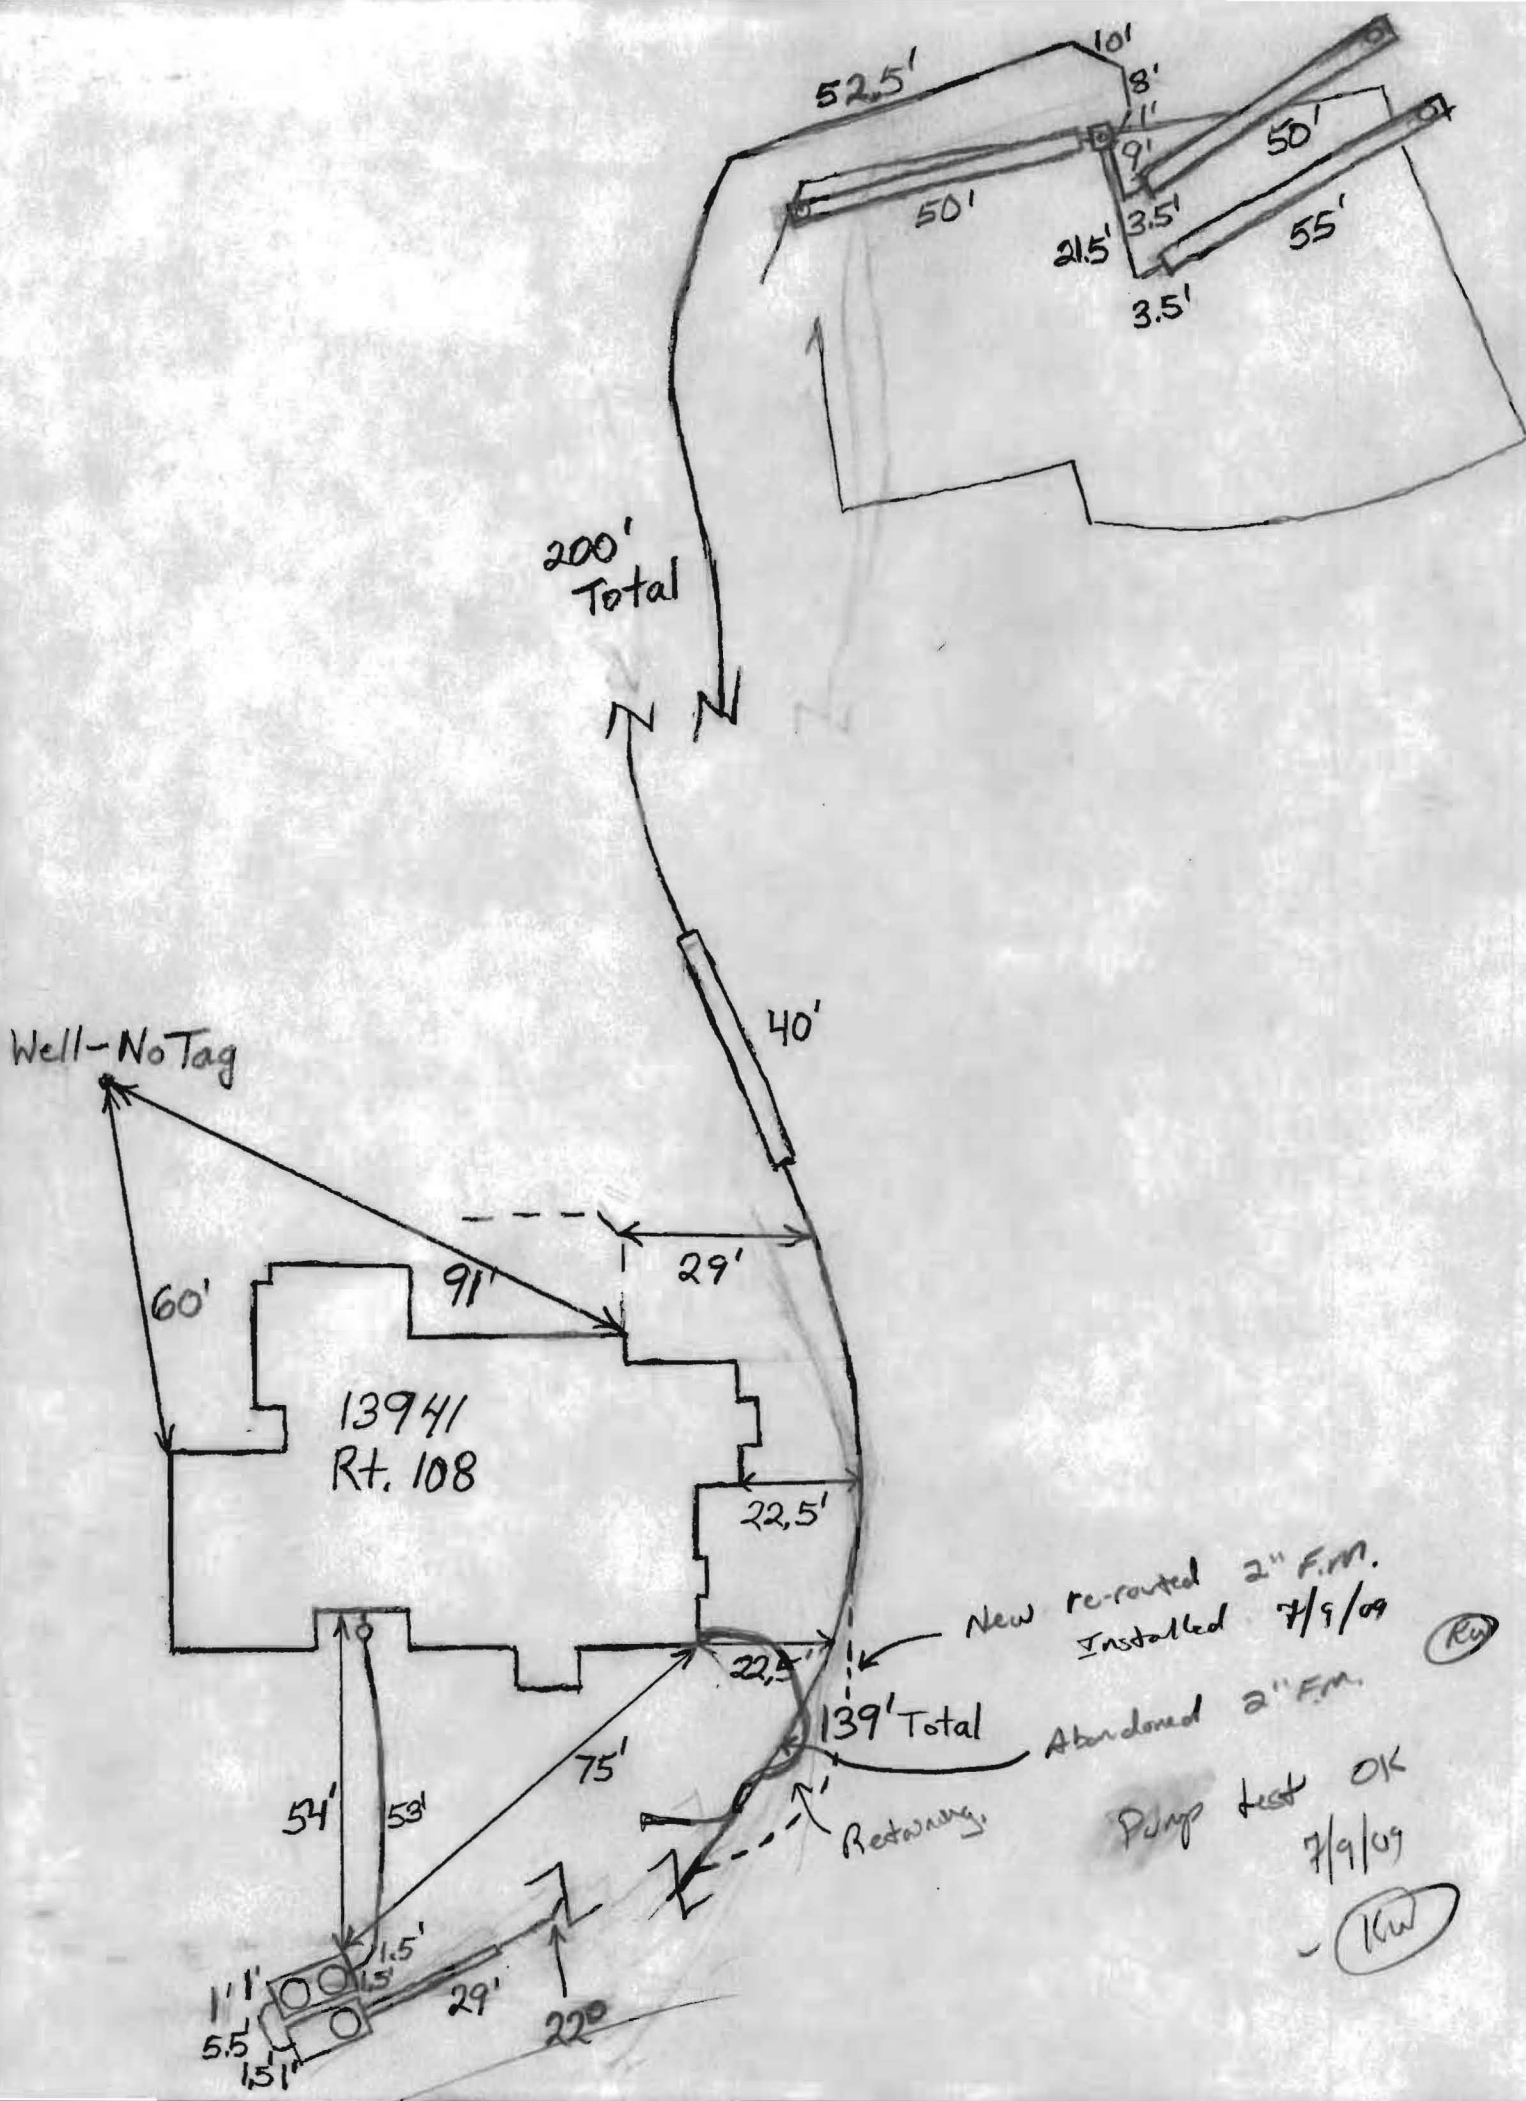 52.5'
10'
8'
1'
9'
50'
50'
3.5'
21.5'
55'
3.5'
200'
Total
40'
Well-No Tag
29'
91'
60'
13941
Rt. 108
22.5'
New re-routed 2" F.M.
Installed 7/9/09
22.5'
139' Total
Abandoned 2" F.M.
75'
54'
53'
Pump test OK
7/9/09
KW
1.5'
1.5'
1' 1'
29'
5.5'
22°
1.5' 1'